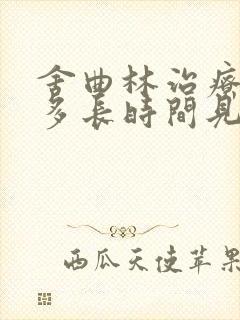 舍曲林治療
多長時間見
西瓜天使苹果